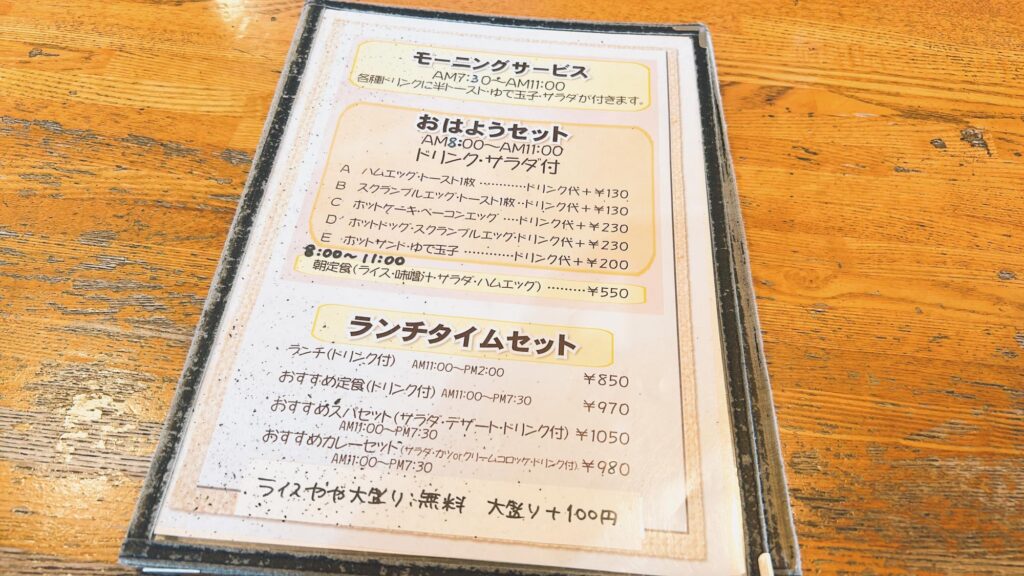 モーニングサービス
AM7:30~AM11:00
各種ドリンクに半トースト・ゆで玉子・サラダが付きます。
おはようセット
AM8:00~AM11:00
ドリンク・サラダ付
A ハムエッグ・トースト1枚 …………ドリンク代+¥130
B スクランブルエッグ・トースト1枚‥ドリンク代+¥130
C ホットケーキ・ベーコンエッグ ‥‥ドリンク代+¥230
D ホットドッグ・スクランブルエッグ・ドリンク代+¥230
E ホットサンド・ゆで玉子 ……………ドリンク代+¥200
8:00~11:00
朝定食(ライス・味噌汁・サラダ・ハムエッグ) ………¥550
ランチタイムセット
ランチ(ドリンク付) AM11:00~PM2:00 ¥850
おすすめ定食(ドリンク付) AM11:00~PM7:30 ¥970
おすすめスパセット(サラダ・デザート・ドリンク付) ¥1050
AM11:00~PM7:30
おすすめカレーセット(サラダ・カツorクリームコロッケ・ドリンク付) ¥980
AM11:00~PM7:30
ライスやや大盛り:無料 大盛り+100円